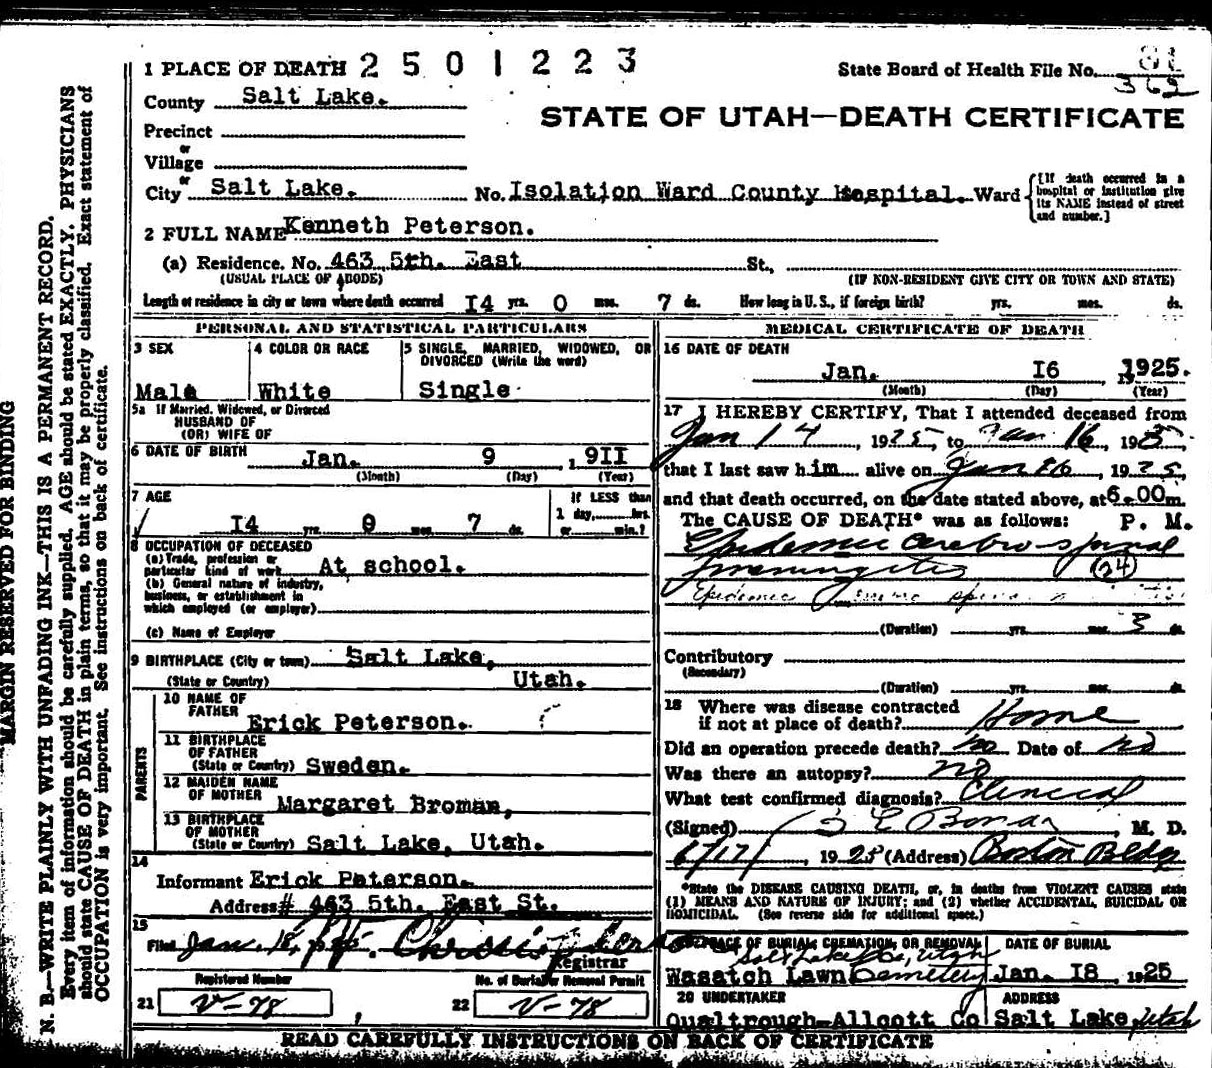 1 PLACE OF DEATH 2501223
State Board of Health File No. 81
362
County Salt Lake.
STATE OF UTAH—DEATH CERTIFICATE
Precinct
or
Village
or
City Salt Lake. No. Isolation Ward County Hospital. Ward
[If death occurred in a hospital or institution give its NAME instead of street and number.]
2 FULL NAME Kenneth Peterson.
(a) Residence. No. 463 5th. East St.,
(USUAL PLACE OF ABODE) (IF NON-RESIDENT GIVE CITY OR TOWN AND STATE)
Length of residence in city or town where death occurred I4 yrs. 0 mos. 7 ds. How long in U. S., if foreign birth? yrs. mos. ds.
PERSONAL AND STATISTICAL PARTICULARS
3 SEX
Male
4 COLOR OR RACE
White
5 SINGLE, MARRIED, WIDOWED, OR
DIVORCED (Write the word)
Single
5a If Married, Widowed, or Divorced
HUSBAND OF
(OR) WIFE OF
6 DATE OF BIRTH Jan. 9 , 19II
(Month) (Day) (Year)
7 AGE
I4 yrs. 0 mos. 7 ds.
If LESS than
1 day, hrs.
or min.?
8 OCCUPATION OF DECEASED
(a) Trade, profession or
particular kind of work At school.
(b) General nature of industry,
business, or establishment in
which employed (or employer)
(c) Name of Employer
9 BIRTHPLACE (City or town) Salt Lake,
(State or Country) Utah.
PARENTS
10 NAME OF
FATHER Erick Peterson.
11 BIRTHPLACE
OF FATHER
(State or Country) Sweden.
12 MAIDEN NAME
OF MOTHER Margaret Broman,
13 BIRTHPLACE
OF MOTHER
(State or Country) Salt Lake, Utah.
14
Informant Erick Peterson.
Address # 463 5th. East St.
15
Filed Jan. 18,
Registrar
Registered Number No. of Burial or Removal Permit
21 V-78 22 V-78
MEDICAL CERTIFICATE OF DEATH
16 DATE OF DEATH
Jan. I6 , 1925.
(Month) (Day) (Year)
17 I HEREBY CERTIFY, That I attended deceased from
Jan 14, 1925, to Jan 16, 1925
that I last saw him alive on Jan 16, 1925,
and that death occurred, on the date stated above, at 6-00m.
The CAUSE OF DEATH* was as follows: P. M.
Epidemic cerebro-spinal
meningitis (24)
Epidemic
(Duration) yrs. mos. 3 ds.
Contributory
(Secondary)
(Duration) yrs. mos. ds.
18 Where was disease contracted
if not at place of death? Home
Did an operation precede death? no Date of no
Was there an autopsy? no
What test confirmed diagnosis? Clinical
(Signed) , M. D.
, 1925 (Address) Boston Bldg
*State the DISEASE CAUSING DEATH, or, in deaths from VIOLENT CAUSES state
(1) MEANS AND NATURE OF INJURY; and (2) whether ACCIDENTAL, SUICIDAL OR
HOMICIDAL. (See reverse side for additional space.)
PLACE OF BURIAL, CREMATION, OR REMOVAL
Salt Lake Co, Utah
Wasatch Lawn Cemetery
DATE OF BURIAL
Jan. I8 , 1925
20 UNDERTAKER
Qualtrough-Allcott Co
ADDRESS
Salt Lake, Utah
READ CAREFULLY INSTRUCTIONS ON BACK OF CERTIFICATE
MARGIN RESERVED FOR BINDING
N. B.—WRITE PLAINLY WITH UNFADING INK—THIS IS A PERMANENT RECORD.
Every item of information should be carefully supplied. AGE should be stated EXACTLY. PHYSICIANS
should state CAUSE OF DEATH in plain terms, so that it may be properly classified. Exact statement of
OCCUPATION is very important. See instructions on back of certificate.